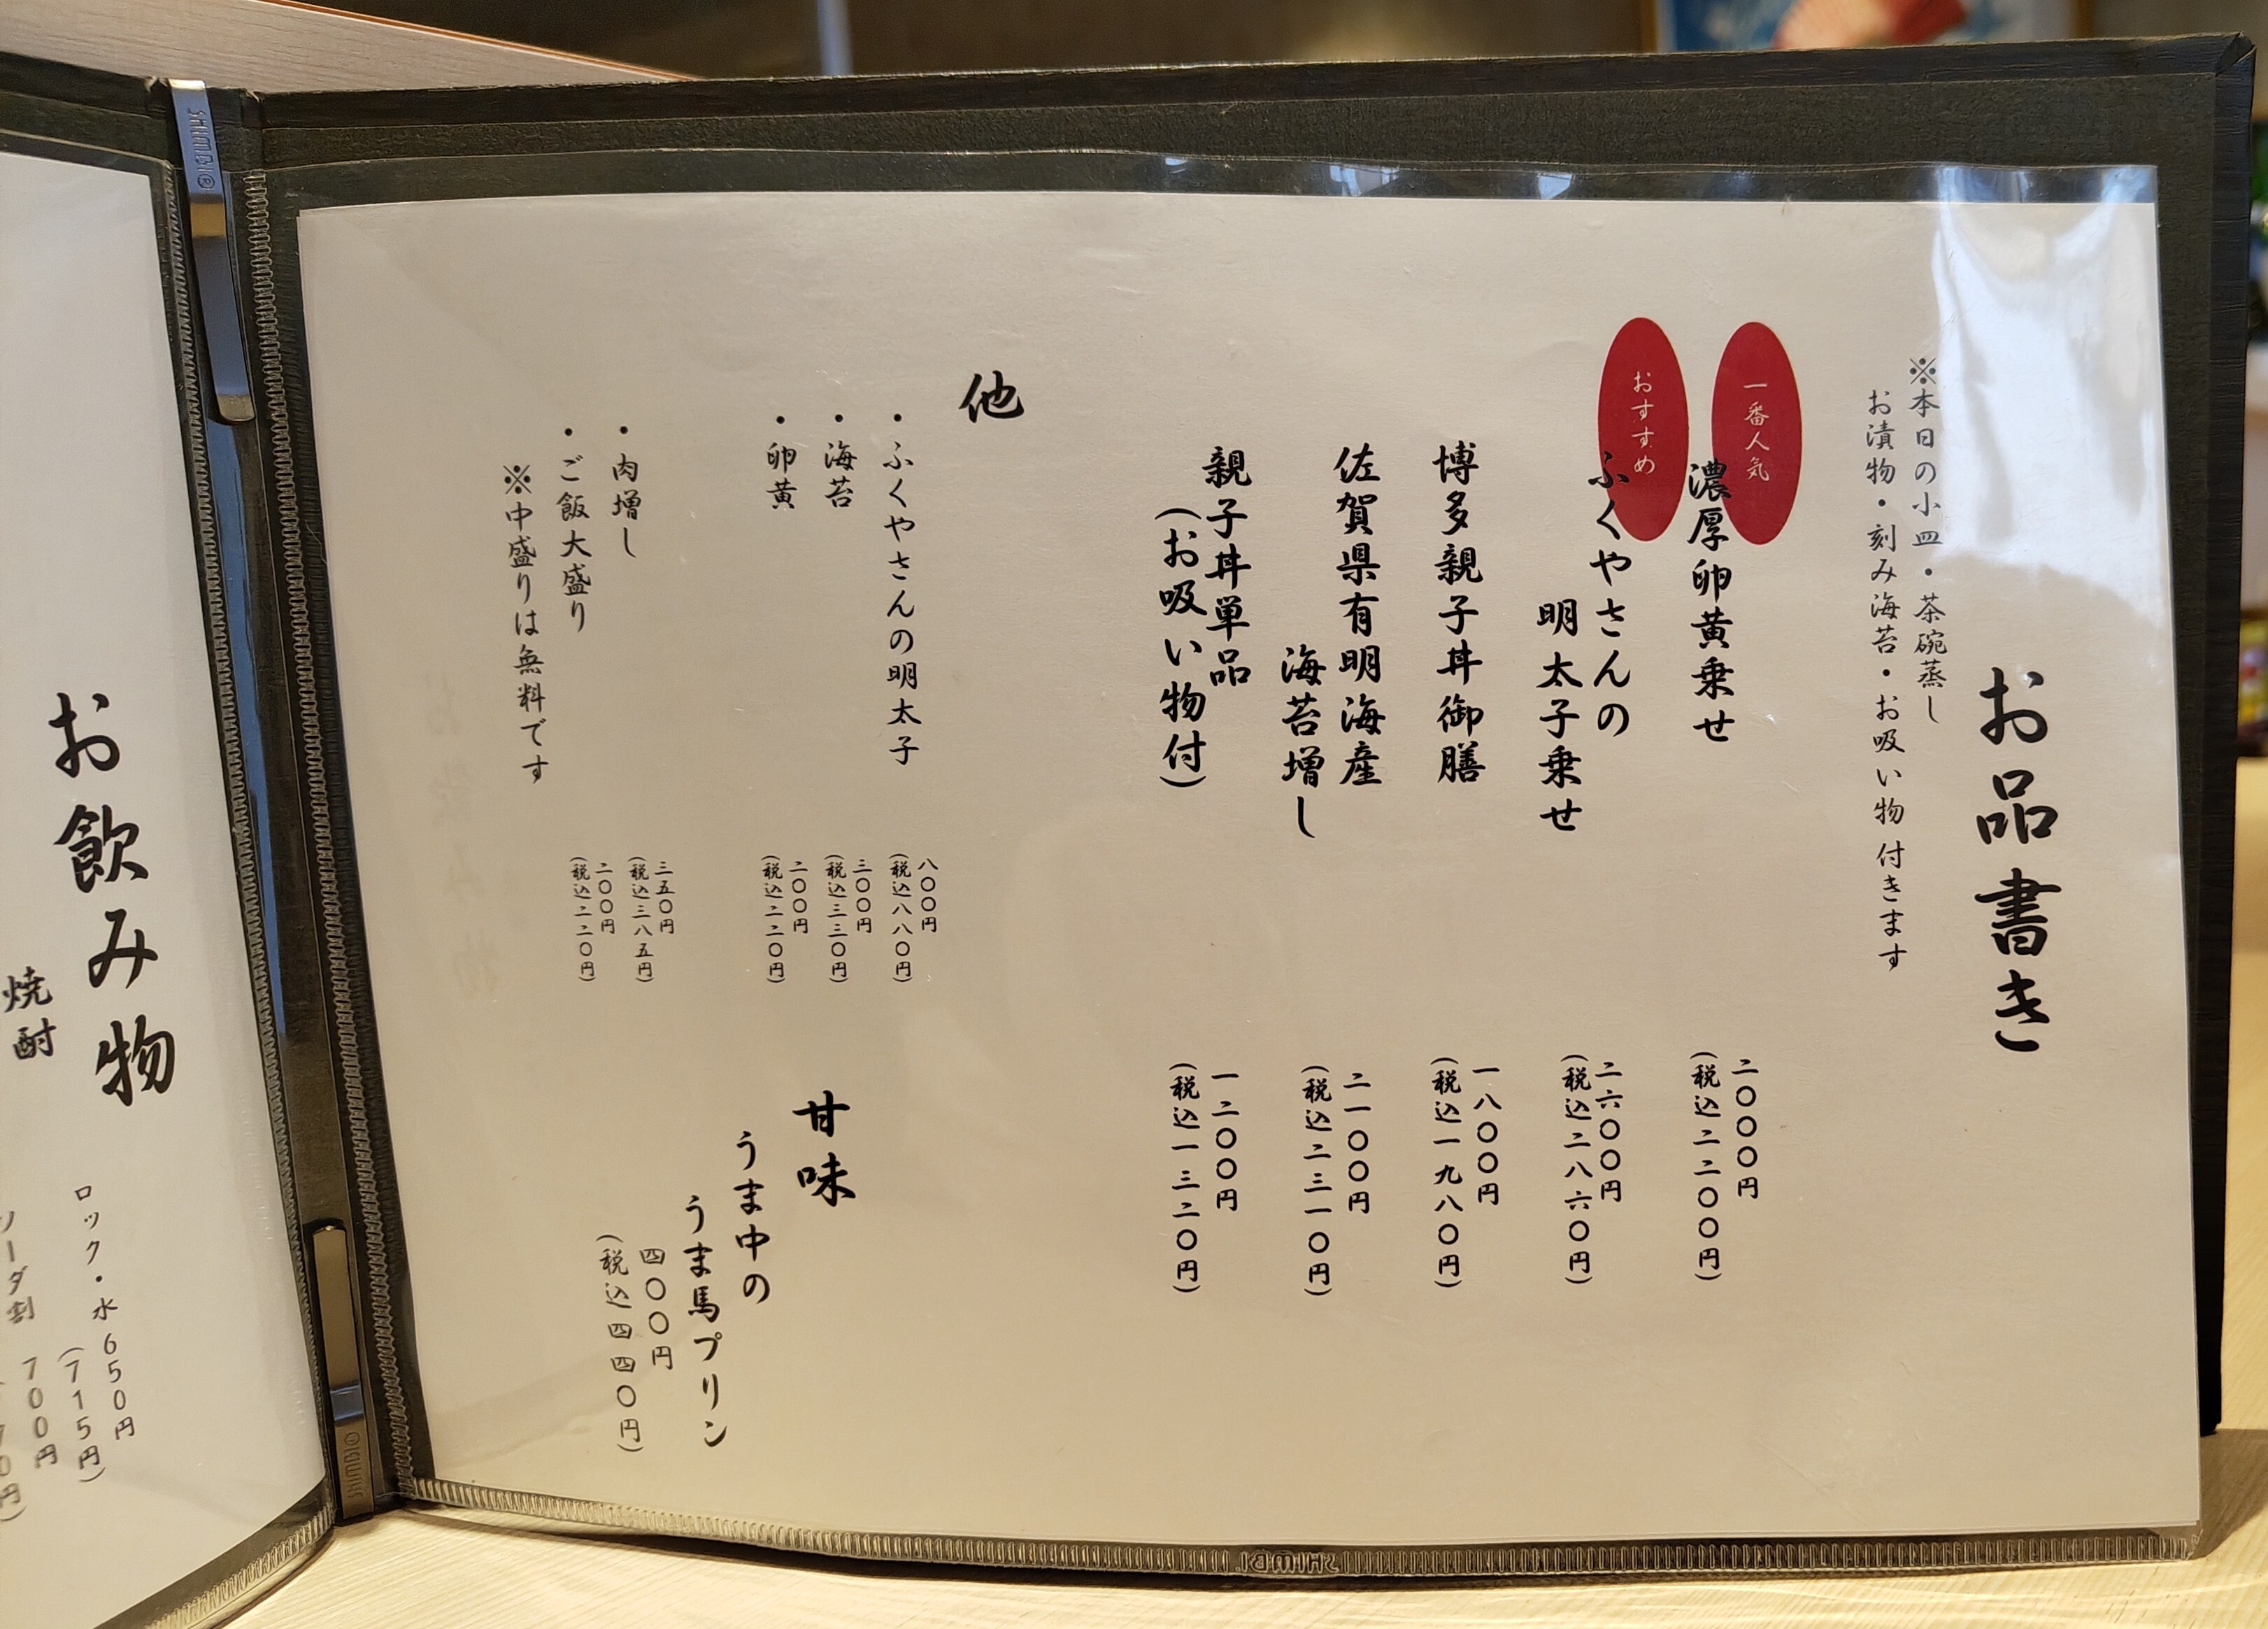 お品書き
※本日の小皿・茶碗蒸し
お漬物・刻み海苔・お吸い物付きます
一番人気
濃厚卵黄乗せ
二〇〇〇円
(税込二二〇〇円)
おすすめ
ふくやさんの
明太子乗せ
二六〇〇円
(税込二八六〇円)
博多親子丼御膳
一八〇〇円
(税込一九八〇円)
佐賀県有明海産
海苔増し
二一〇〇円
(税込二三一〇円)
親子丼単品
(お吸い物付)
一二〇〇円
(税込一三二〇円)
他
・ふくやさんの明太子
八〇〇円
(税込八八〇円)
・海苔
三〇〇円
(税込三三〇円)
・卵黄
二〇〇円
(税込二二〇円)
・肉増し
三五〇円
(税込三八五円)
・ご飯大盛り
二〇〇円
(税込二二〇円)
※中盛りは無料です
甘味
うま中の
うま馬プリン
四〇〇円
(税込四四〇円)
お飲み物
焼酎
ロック・水 650円
(715円)
ソーダ割 700円
SHIMBI
SHIMBI
SHIMBI